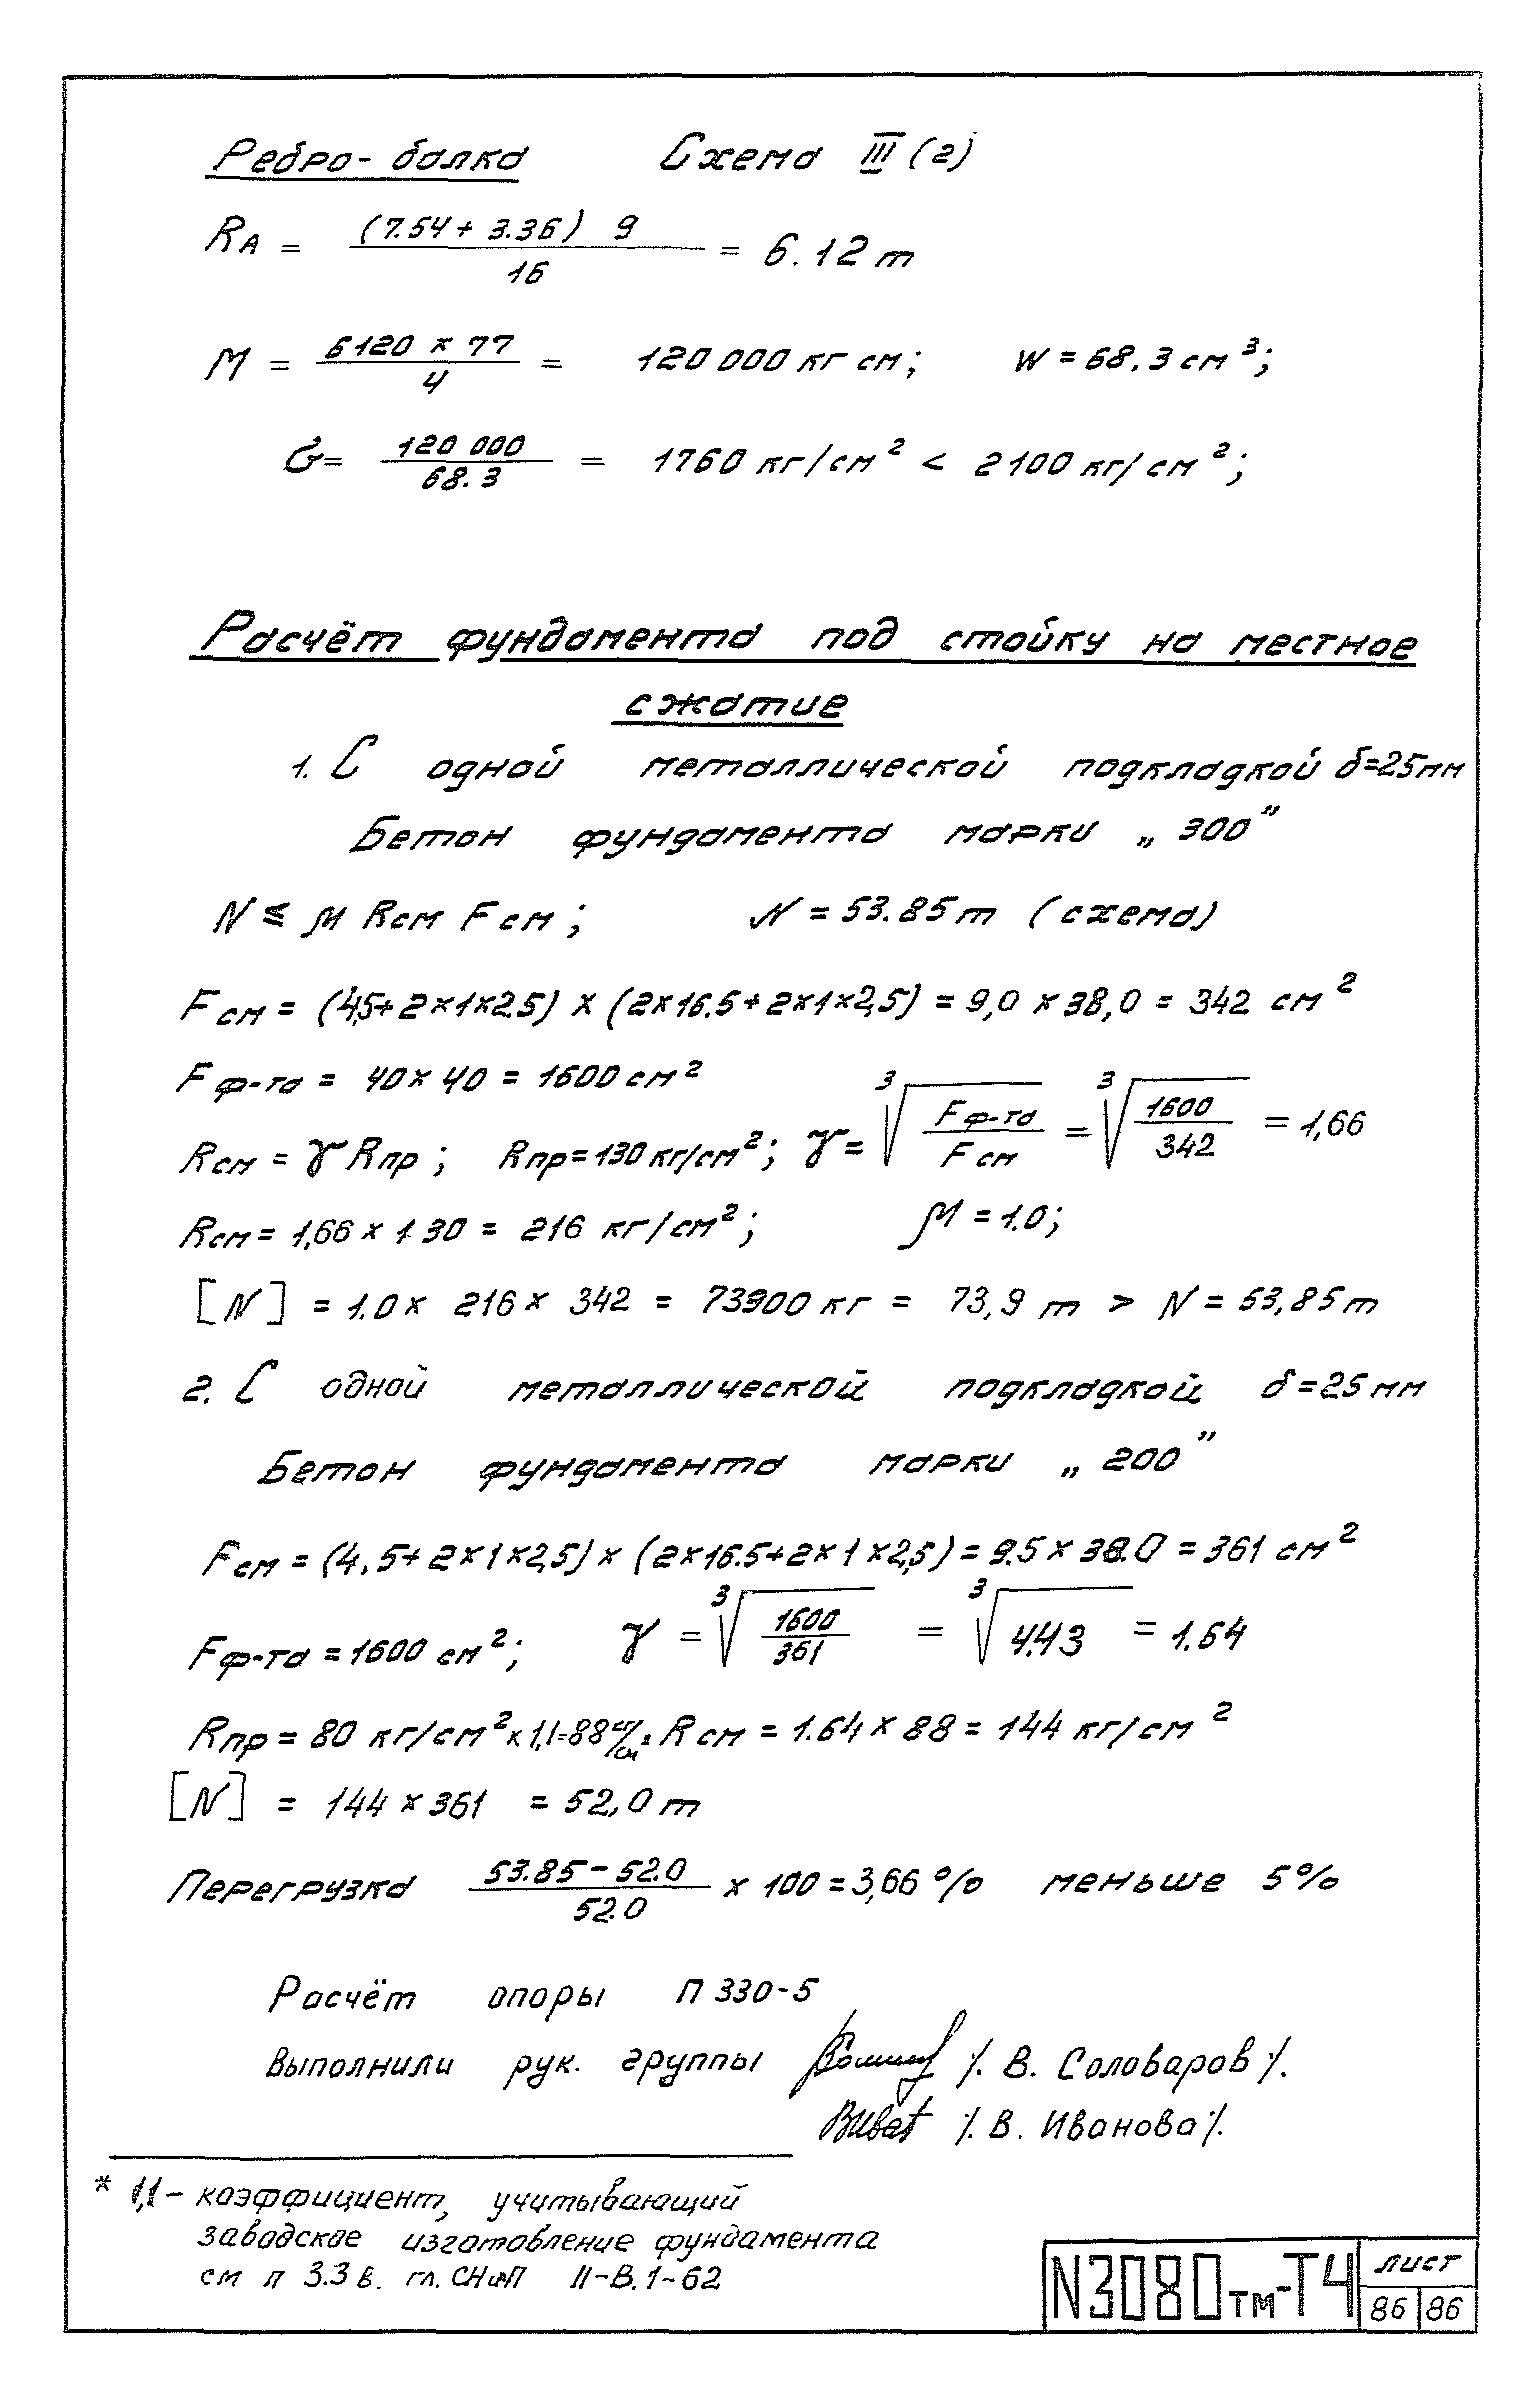 Ребро-балка Схема III (г)
RА = (7.54 + 3.36) 9 / 16 = 6.12 т
M = 6120 × 77 / 4 = 120 000 кг см; W = 68.3 см³;
σ = 120 000 / 68.3 = 1760 кг/см² < 2100 кг/см²;
Расчёт фундамента под стойку на местное
сжатие
1. С одной металлической подкладкой δ=25мм
Бетон фундамента марки „300”
N ≤ μ Rсм Fсм; N = 53.85 т (схема)
Fсм = (4,5+2×1×2.5) × (2×16.5+2×1×2,5) = 9,0 × 38,0 = 342 см²
Fф-та = 40×40 = 1600 см²
Rсм = γ Rпр; Rпр=130 кг/см²; γ = ³√(Fф-та / Fсм) = ³√(1600 / 342) = 1,66
Rсм = 1,66 × 130 = 216 кг/см²; μ = 1.0;
[N] = 1.0 × 216 × 342 = 73900 кг = 73,9 т > N = 53,85 т
2. С одной металлической подкладкой δ=25 мм
Бетон фундамента марки „200”
Fсм = (4,5+2×1×2,5) × (2×16.5+2×1×2,5) = 9.5 × 38.0 = 361 см²
Fф-та = 1600 см²; γ = ³√(1600 / 361) = ³√4.43 = 1.64
Rпр = 80 кг/см² × 1,1=88 кг/см² Rсм = 1.64 × 88 = 144 кг/см²
[N] = 144 × 361 = 52,0 т
Перегрузка 53.85 – 52.0 / 52.0 × 100 = 3,66 % меньше 5%
Расчёт опоры П 330-5
Выполнили рук. группы /. В. Соловаров /.
/. В. Иванова /.
* 1,1 – коэффициент, учитывающий
заводское изготовление фундамента
см п 3.3 в. гл. СНиП II-В.1-62
N3080тм-Т4 лист
86 86